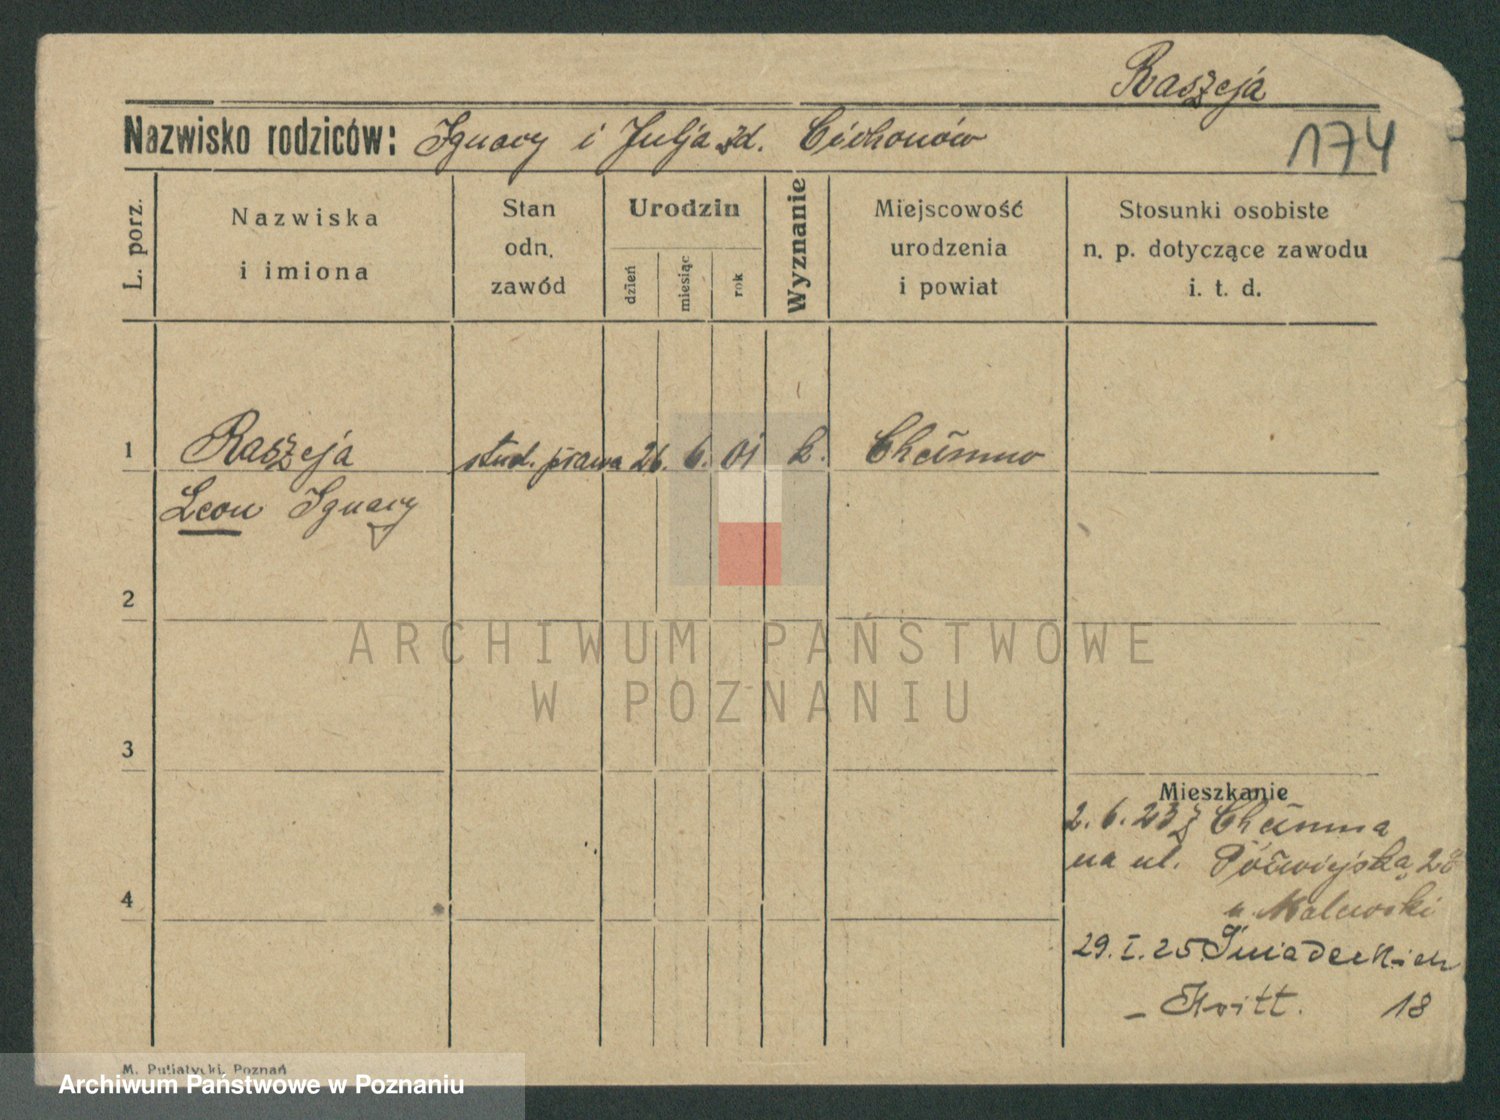 Raszeja
Nazwisko rodziców: Ignacy i Julja zd. Cichonów
174
L. porz.
Nazwiska
i imiona
Stan
odn.
zawód
Urodzin
dzień
miesiąc
rok
Wyznanie
Miejscowość
urodzenia
i powiat
Stosunki osobiste
n. p. dotyczące zawodu
i. t. d.
1 Raszeja stud. prawa 26. 6. 01 k. Chełmno
Leon Ignacy
2
ARCHIWUM PAŃSTWOWE
W POZNANIU
3
Mieszkanie
2. 6. 23 z Chełmna
na ul. Półwiejska 28
u. Malewski
4
29. I. 25 Śniadeckich
18
M. Putiatycki, Poznań
Archiwum Państwowe w Poznaniu